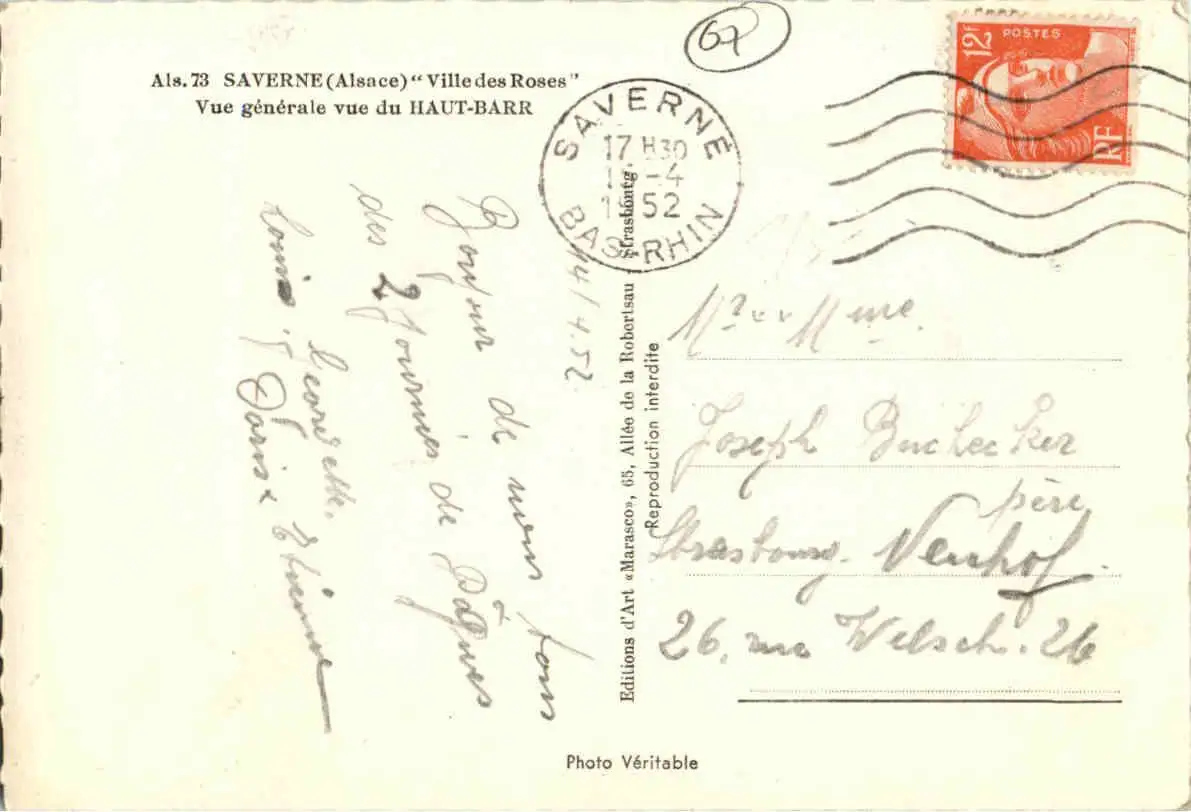 67
Als. 73 SAVERNE (Alsace) “Ville des Roses”
Vue générale vue du HAUT-BARR
SAVERNE
17 H30
-4
1952
BAS-RHIN
12F
POSTES
RF
14/4.52
Bonjour de nous tous
des 2 Journées de Pâques
Louis, Georgette,
Doris & Etienne
Editions d'Art «Marasco», 65, Allée de la Robertsau Strasbourg.
Reproduction interdite
Mr & Mme
Joseph Buchecker
père
Strasbourg. Neuhof
26, rue Welsch. 26
Photo Véritable